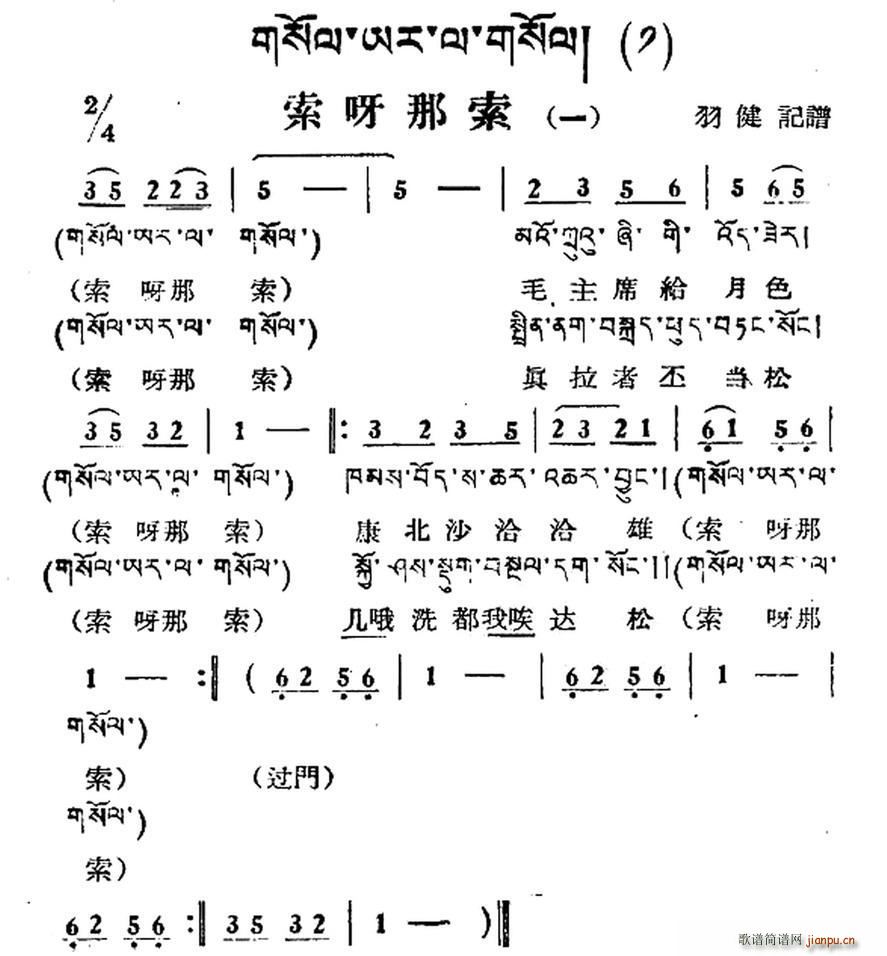 གསོལ་ཨར་ལ་གསོལ། (༡)
2/4 索呀那索 (一) 羽健記譜
3 5 2 2 3 | 5 — | 5 — | 2 3 5 6 | 5 6 5
(གསོལ་ཨར་ལ་ གསོལ་) མའོ་ཀྲུའུ་ཞི་ གི་ འོད་ཟེར།
(索 呀那 索) 毛主席給 月色
(གསོལ་ཨར་ལ་ གསོལ་) སྤྲིན་ནག་བསྐྲད་ཕུད་བཏང་སོང།
(索 呀那 索) 眞拉者丕 当松
3 5 3 2 | 1 — ‖: 3 2 3 5 | 2 3 2 1 | 6 1 5 6 |
(གསོལ་ཨར་ལ་ གསོལ་) ཁམས་བོད་ས་ཆར་འཆར་བྱུང་། (གསོལ་ཨར་ལ་
(索 呀那 索) 康北沙洽洽 雄 (索 呀那
(གསོལ་ཨར་ལ་ གསོལ་) སྐྱོ་ཤས་སྡུག་བསྔལ་དག་སོང་།། (གསོལ་ཨར་ལ་
(索 呀那 索) 几哦洗都我唉达 松 (索 呀那
1 — :‖ ( 6 2 5 6 | 1 — | 6 2 5 6 | 1 — |
གསོལ་)
索) (过門)
གསོལ་)
索)
6 2 5 6 :‖ 3 5 3 2 | 1 — )‖
歌谱简谱网 jianpu.cn